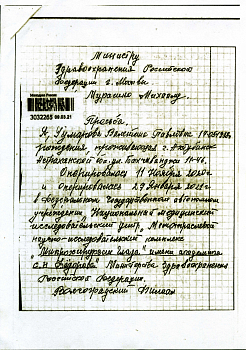 Министру
Здравоохранения Российской
Федерации г. Москвы
Мурашко Михаилу.
3032265 09.03.21
Просьба.
Я, Валентина Павловна
рождения, проживающая г. Ахтубинск
Астраханской обл. ул.
Оперировалась 11 Ноября 2020г
и оперировалась 29 Января 2021г
в Федеральном Государственном автономном
учреждении Национальный медицинский
исследовательский центр, Межотраслевой
научно-исследовательский комплекс
"Микрохирургия Глаза" имени академика
С.Н. Фёдорова Минздрава Здравоохранения
Российской Федерации.
Волгоградский Филиал